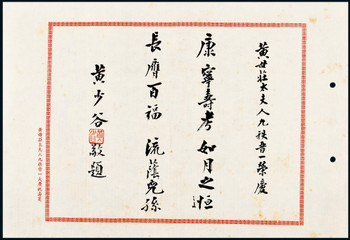 黃母莊太夫人九秩晉一榮慶
康寧壽考　如月之恒
長膺百福　流蔭兒孫
黃少谷　敬題